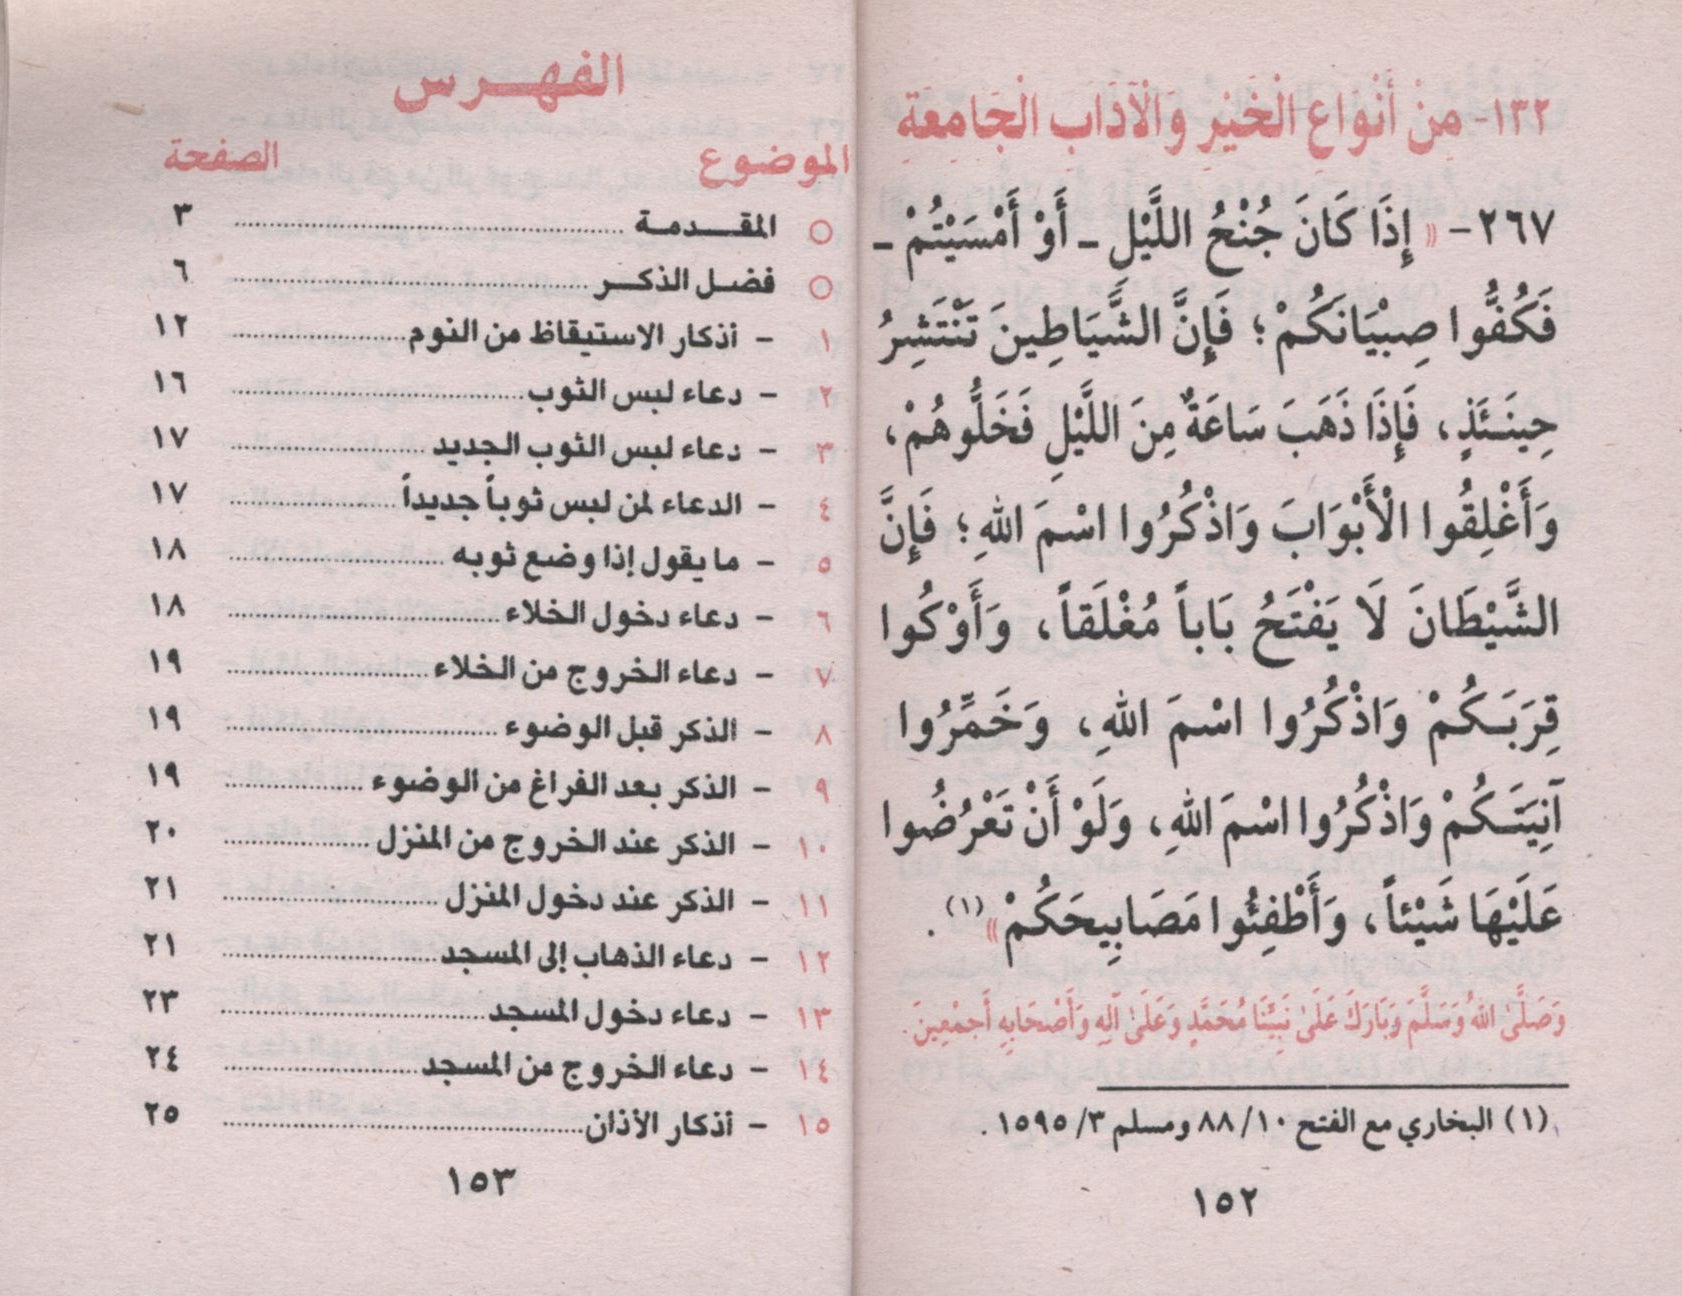 ١٣٢- مِنْ أَنْوَاعِ الْخَيْرِ وَالْآدَابِ الْجَامِعَةِ
٢٦٧- «إِذَا كَانَ جُنْحُ اللَّيْلِ ـ أَوْ أَمْسَيْتُمْ ـ
فَكُفُّوا صِبْيَانَكُمْ؛ فَإِنَّ الشَّيَاطِينَ تَنْتَشِرُ
حِينَـئَذٍ، فَإِذَا ذَهَبَ سَاعَةٌ مِنَ اللَّيْلِ فَخَلُّوهُمْ،
وَأَغْلِقُوا الْأَبْوَابَ وَاذْكُرُوا اسْمَ اللهِ؛ فَإِنَّ
الشَّيْطَانَ لَا يَفْتَحُ بَاباً مُغْلَقاً، وَأَوْكُوا
قِرَبَـكُمْ وَاذْكُرُوا اسْمَ اللهِ، وَخَمِّرُوا
آنِيَتَـكُمْ وَاذْكُرُوا اسْمَ اللهِ، وَلَوْ أَنْ تَعْرُضُوا
عَلَيْهَا شَيْئاً، وَأَطْفِئُوا مَصَابِيحَكُمْ»(١).
وَصَلَّىٰ اللهُ وَسَلَّمَ وَبَارَكَ عَلَىٰ نَبِيِّنَا مُحَمَّدٍ وَعَلَىٰ آلِهِ وَأَصْحَابِهِ أَجْمَعِينَ.
(١) البخاري مع الفتح ١٠/ ٨٨ ومسلم ٣/ ١٥٩٥.
١٥٢
الفهـــرس
الموضوع الصفحة
○ المقـــدمـة ........ ٣
○ فضـل الذكـــر ........ ٦
١ - أذكار الاستيقاظ من النوم ........ ١٢
٢ - دعاء لبس الثوب ........ ١٦
٣ - دعاء لبس الثوب الجديد ........ ١٧
٤ - الدعاء لمن لبس ثوباً جديداً ........ ١٧
٥ - ما يقول إذا وضع ثوبه ........ ١٨
٦ - دعاء دخول الخلاء ........ ١٨
٧ - دعاء الخروج من الخلاء ........ ١٩
٨ - الذكر قبل الوضوء ........ ١٩
٩ - الذكر بعد الفراغ من الوضوء ........ ١٩
١٠ - الذكر عند الخروج من المنزل ........ ٢٠
١١ - الذكر عند دخول المنزل ........ ٢١
١٢ - دعاء الذهاب إلى المسجد ........ ٢١
١٣ - دعاء دخول المسجد ........ ٢٣
١٤ - دعاء الخروج من المسجد ........ ٢٤
١٥ - أذكار الأذان ........ ٢٥
١٥٣